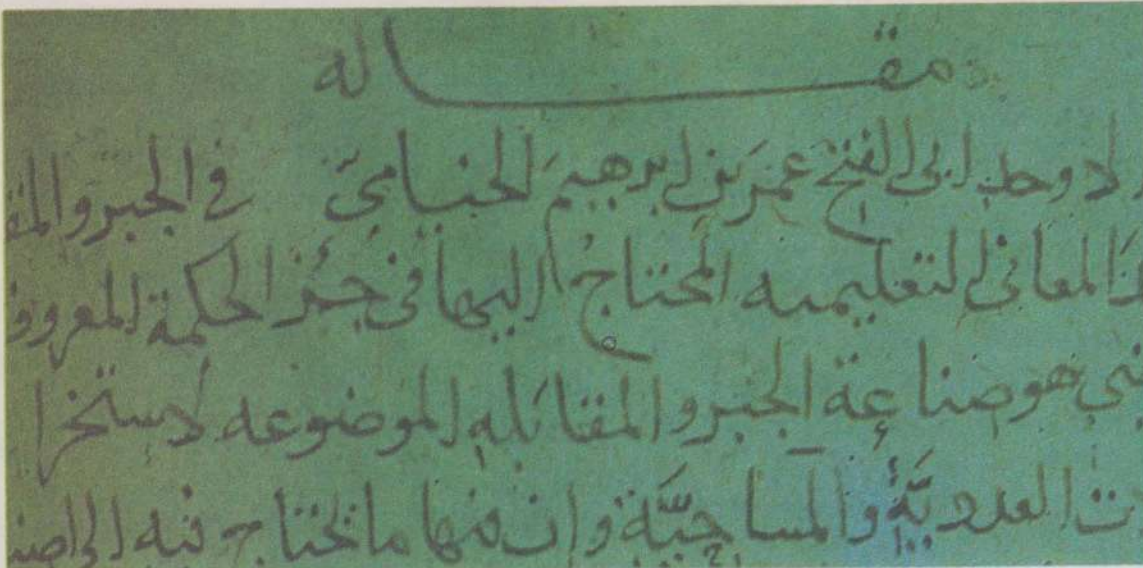 مقـــاله
لاوحد ابى الفتح عمر بن ابرهيم الخيامى في الجبر والمقا
المعانى التعليميه المحتاج اليها في جزء الحكمة المعروف
هو صناعة الجبر والمقابله الموضوعه لاستخرا
ت العددية والمساحية وان منها ما يحتاج فيه الى اصنا